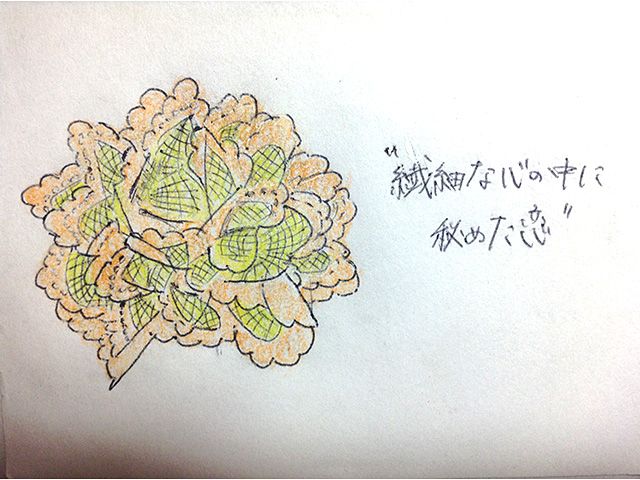 “繊細な心の中に
秘めた恋”